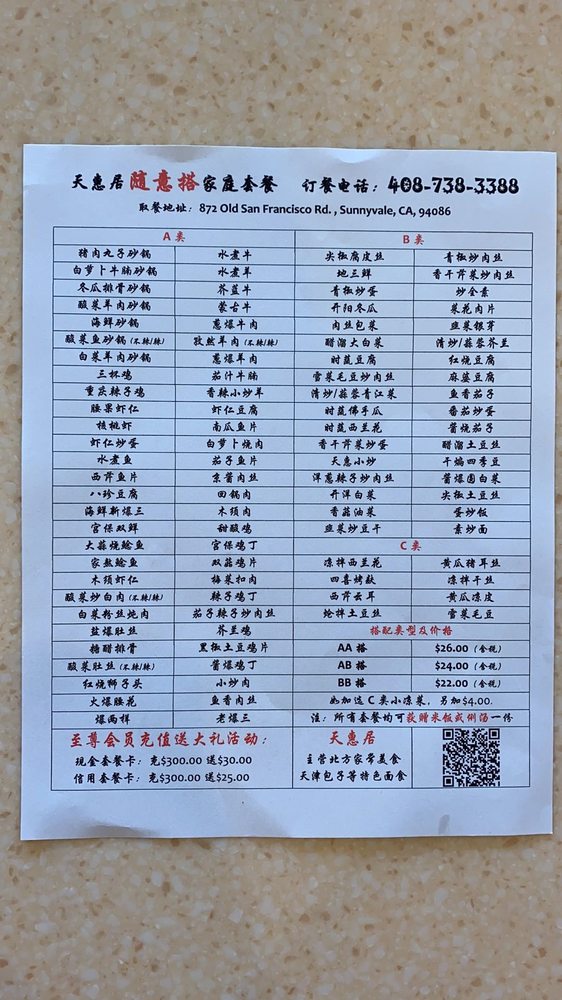 天惠居 随意搭 家庭套餐 订餐电话：408-738-3388
取餐地址：872 Old San Francisco Rd. , Sunnyvale, CA, 94086
A 类 B 类
猪肉丸子砂锅 水煮牛 尖椒腐皮丝 青椒炒肉丝
白萝卜牛腩砂锅 水煮羊 地三鲜 香干芹菜炒肉丝
冬瓜排骨砂锅 芥蓝牛 青椒炒蛋 炒合素
酸菜羊肉砂锅 蒙古牛 开阳冬瓜 菜花肉片
海鲜砂锅 葱爆牛肉 肉丝包菜 韭菜银芽
酸菜鱼砂锅（不辣/辣） 孜然羊肉（不辣/辣） 醋溜大白菜 清炒/蒜蓉芥兰
白菜羊肉砂锅 葱爆羊肉 时蔬豆腐 红烧豆腐
三杯鸡 茄汁牛腩 雪菜毛豆炒肉丝 麻婆豆腐
重庆辣子鸡 香辣小炒羊 清炒/蒜蓉青江菜 鱼香茄子
腰果虾仁 虾仁豆腐 时蔬佛手瓜 番茄炒蛋
核桃虾 南瓜鱼片 时蔬西兰花 酱烧茄子
虾仁炒蛋 白萝卜烧肉 香干芹菜炒蛋 醋溜土豆丝
水煮鱼 茄子鱼片 天惠小炒 干煸四季豆
西芹鱼片 京酱肉丝 洋葱辣子炒肉丝 酱爆圆白菜
八珍豆腐 回锅肉 开洋白菜 尖椒土豆丝
海鲜新爆三 木须肉 香菇油菜 蛋炒饭
宫保双鲜 甜酸鸡 韭菜炒豆干 素炒面
大蒜烧鲶鱼 宫保鸡丁 C 类
家熬鲶鱼 双菇鸡片 凉拌西兰花 黄瓜猪耳丝
木须虾仁 梅菜扣肉 四喜烤麸 凉拌干丝
酸菜炒白肉（不辣/辣） 辣子鸡丁 西芹云耳 黄瓜凉皮
白菜粉丝炖肉 茄子辣子炒肉丝 炝拌土豆丝 雪菜毛豆
盐爆肚丝 芥兰鸡 搭配类型及价格
糖醋排骨 黑椒土豆鸡片 AA 搭 $26.00（含税）
酸菜肚丝（不辣/辣） 酱爆鸡丁 AB 搭 $24.00（含税）
红烧狮子头 小炒肉 BB 搭 $22.00（含税）
火爆腰花 鱼香肉丝 如加选 C 类小凉菜，另加$4.00.
爆两样 老爆三 注：所有套餐均可获赠米饭或例汤一份
至尊会员充值送大礼活动： 天惠居
现金套餐卡：充$300.00 送$30.00 主营北方家常美食
信用套餐卡：充$300.00 送$25.00 天津包子等特色面食